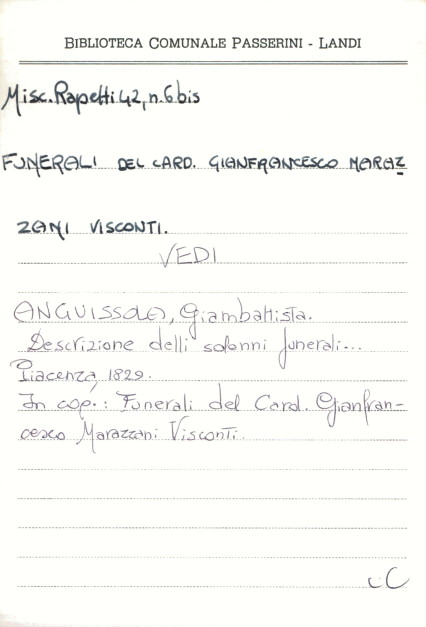 BIBLIOTECA COMUNALE PASSERINI - LANDI
Misc. Rapetti 42, n. 6 bis
FUNERALI DEL CARD. GIANFRANCESCO MARAZ
ZANI VISCONTI.
VEDI
ANGUISSOLA, Giambattista.
Descrizione delli solenni funerali...
Piacenza, 1829.
In cop.: Funerali del Card. Gianfran-
cesco Marazzani Visconti.